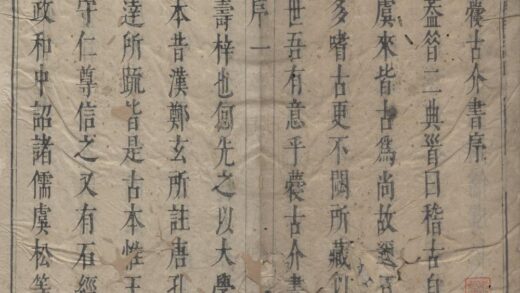 古介書序
二典曰稽古自
虞來皆古爲尚故
多嗜古更不所藏
世吾有意乎古介書
序 一
壽梓也先之以大學
本昔漢鄭玄所註唐孔
達所疏皆是古本惟王
守仁尊信之又有石經
政和中詔諸儒虞松等